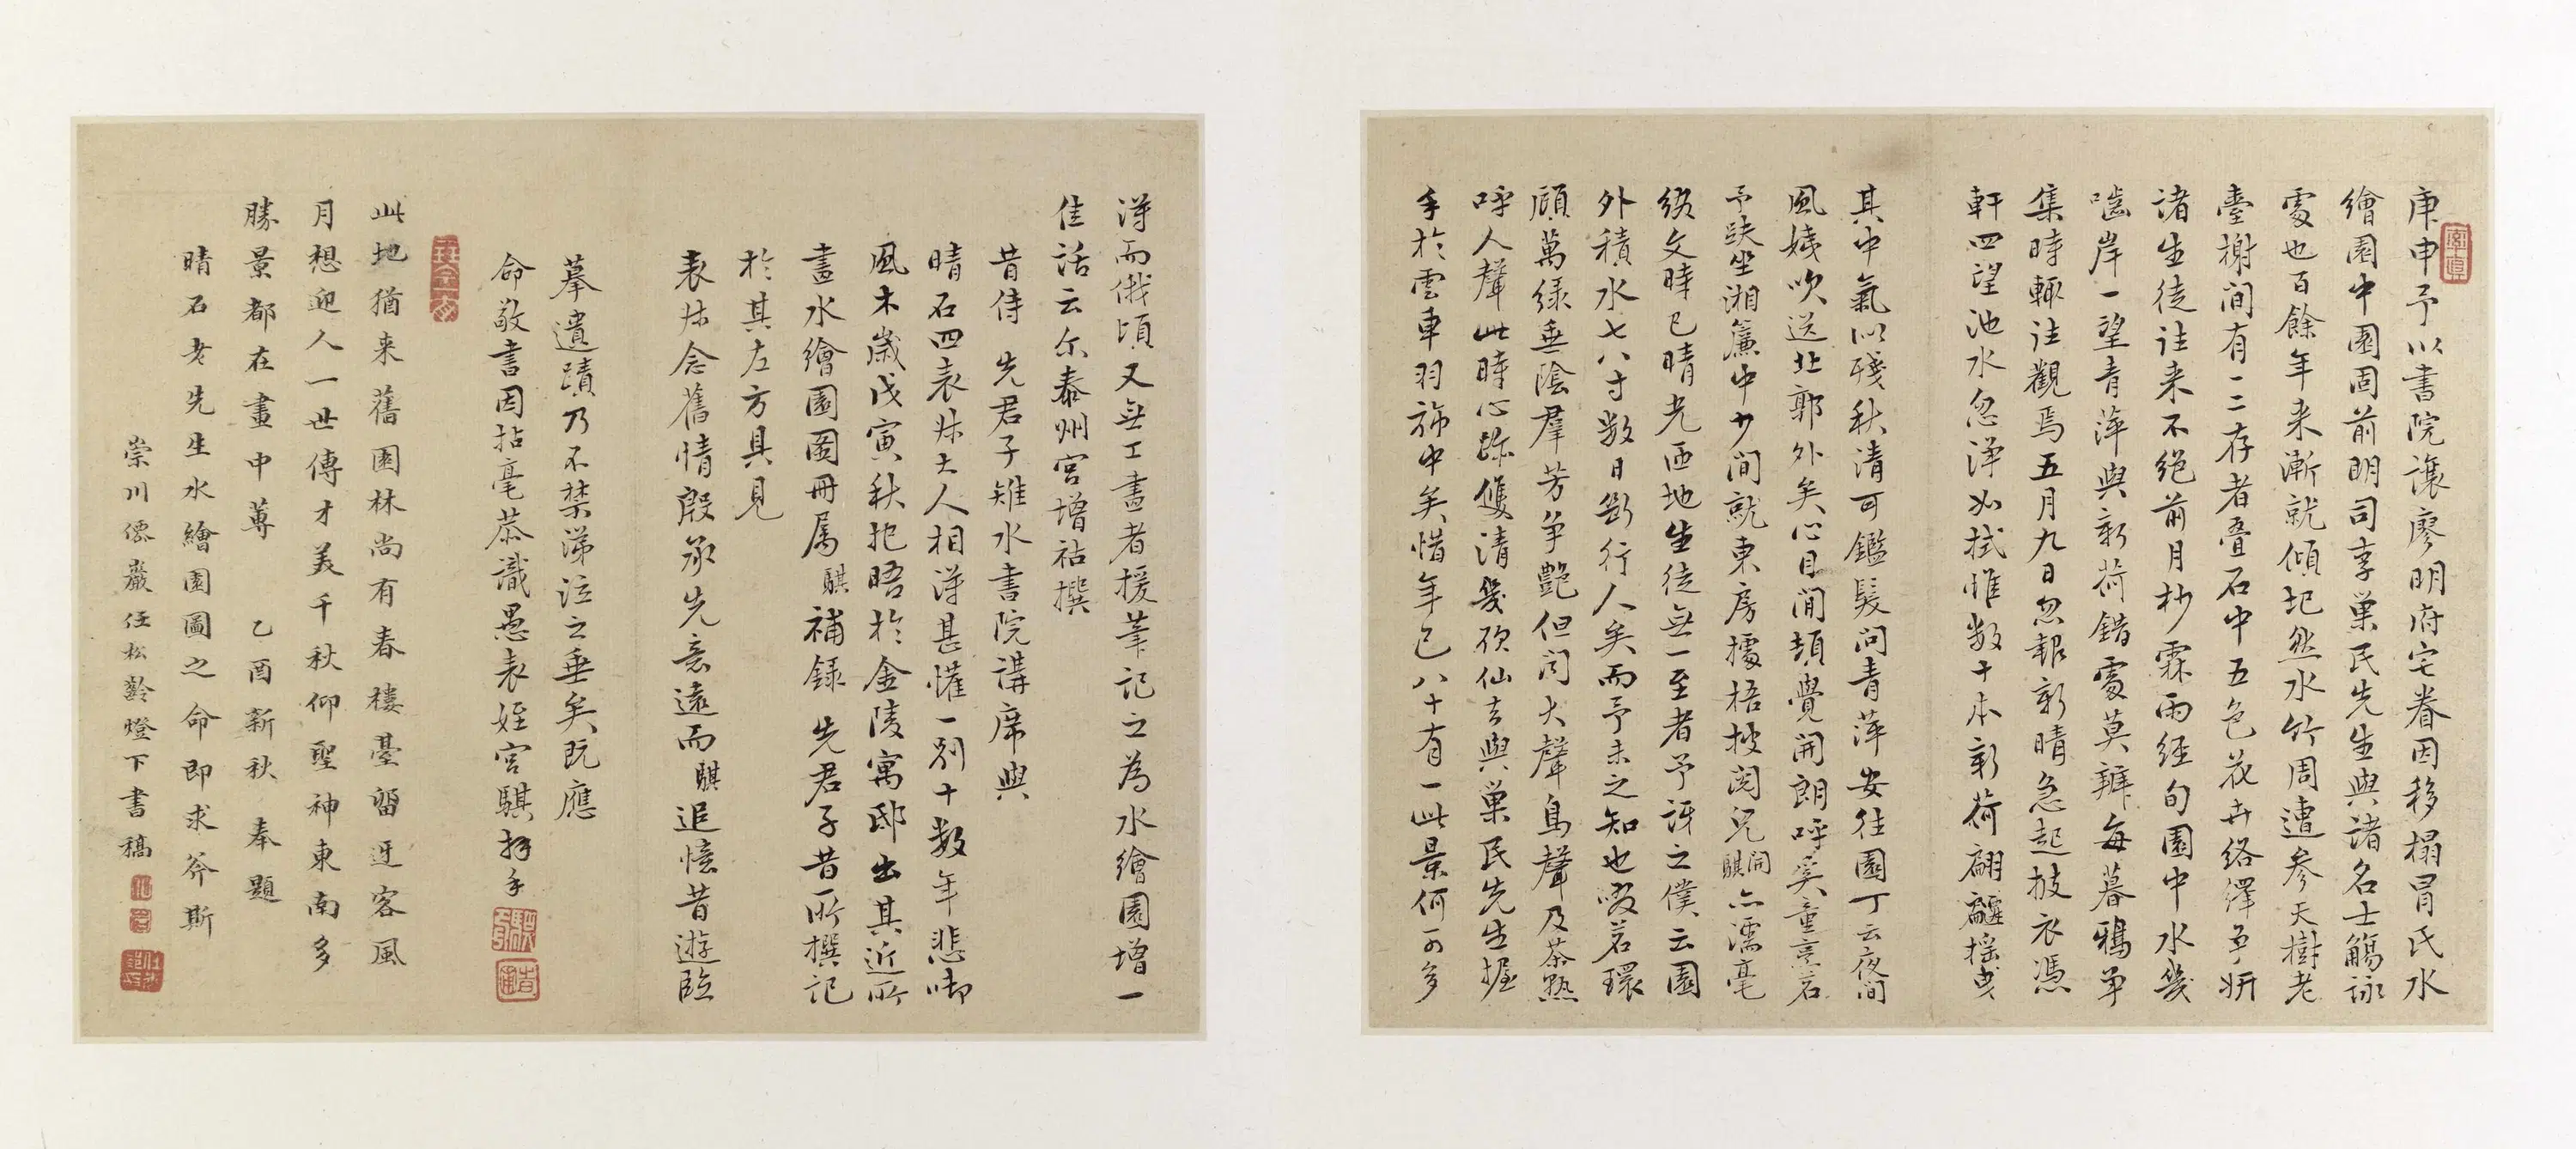 庚申予以書院讓廖明府宅眷因移榻冒氏水
繪園中園固前明司李巢民先生與諸名士觴詠
處也百餘年來漸就傾圮然水竹周遭參天樹老
臺榭間有一二存者疊石中五色花卉絡繹爭妍
諸生徒往來不絕前月杪霖雨經旬園中水幾
嚙岸一望青萍與新荷錯處莫辨每暮鴉爭
集時輒往觀焉五月九日忽報新晴急起披衣憑
軒四望池水忽淨如拭惟數十本新荷翩翻搖曳
其中氣以殘秋清可鑑髮問青萍安往園丁云夜間
風姨吹送北郭外矣心目間頓覺開朗呼奚童烹茗
予趺坐湘簾中少間就東房據梧披閱兒開騏亦濡毫
綴文時已晴光匝地生徒無一至者予訝之僕云園
外積水七八寸數日斷行人矣而予未之知也啜茗環
顧萬綠垂陰羣芳爭艷但聞犬聲鳥聲及茶熟
呼人聲此時心跡雙清幾欲仙去與巢民先生握
手於雲車羽旆中矣惜年已八十有一此景何可多
得而俄頃又無工畫者援筆記之為水繪園增一
佳話云爾泰州宮增祜撰
昔侍 先君子雉水書院講席與
晴石四表叔大人相得甚懽一別十數年悲啣
風木歲戊寅秋把晤於金陵寓邸出其近所
畫水繪園圖冊屬騏補錄 先君子昔所撰記
於其左方具見
表叔念舊情殷承先意遠而騏追憶昔遊臨
摹遺蹟乃不禁涕泣之垂矣既應
命敬書因拈毫恭識愚表姪宮騏拜手
此地猶來舊園林尚有春樓臺留迓客風
月想迎人一世傳才美千秋仰聖神東南多
勝景都在畫中蓴 乙酉新秋 奉題
晴石老先生水繪園圖之命即求斧斯
崇川儒巖任松齡燈下書稿